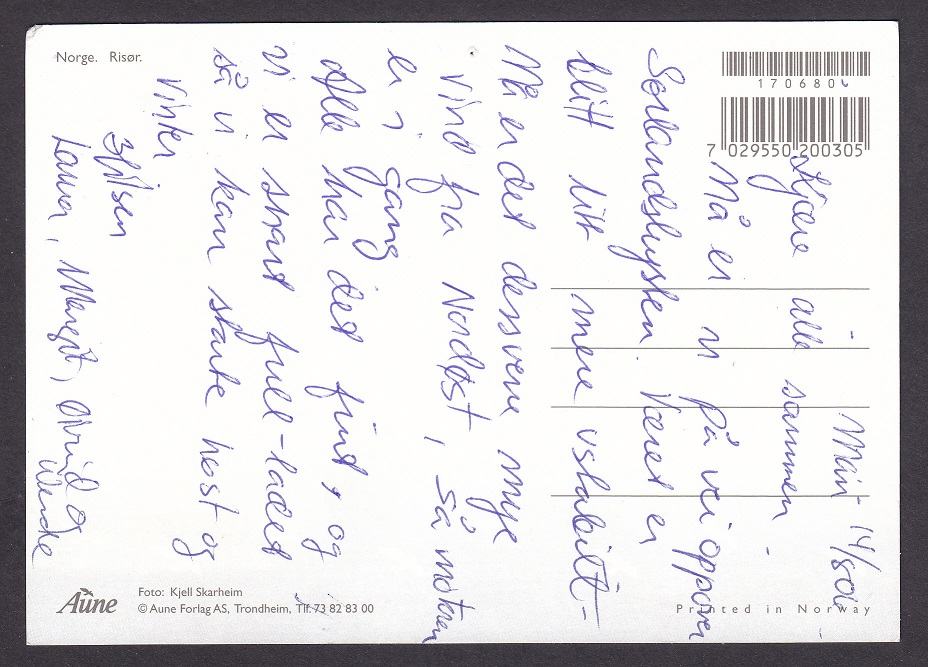 Norge. Risør.
170680
7 029550 200305
Kjære alle sammen -
Nå er vi på vei oppover
Sørlandskysten. Været er
blitt litt mere ustabilt -
Nå er det dessverre mye
vind fra Nordøst, så motoren
er i gang
Alle har det fint, og
vi er snart full-ladet
så vi kan starte høst og
vinter
Hilsen
Laura, Margit, Øivind og
Wenche
Aune
Foto: Kjell Skarheim
© Aune Forlag AS, Trondheim, Tlf. 73 82 83 00
Printed in Norway